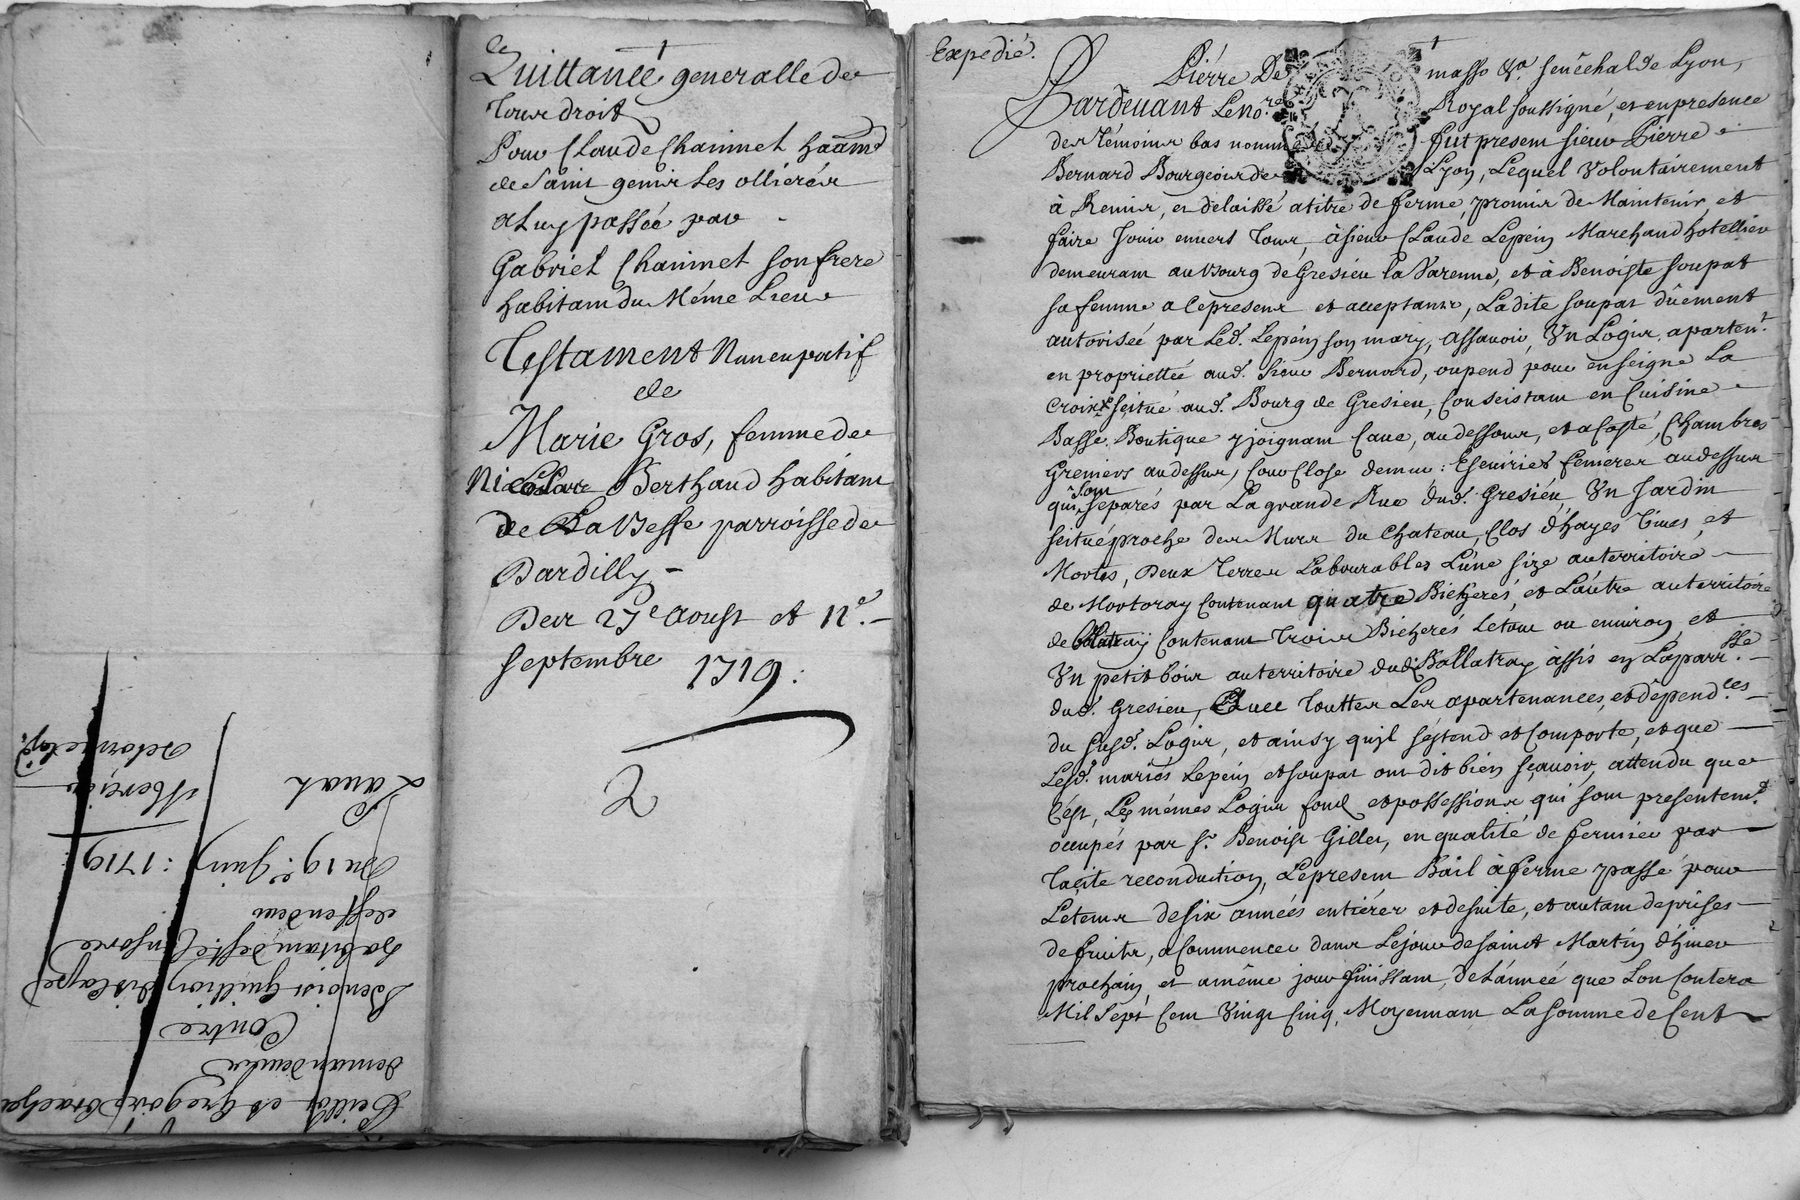 Quittance generalle de
tous droits
Pour Claude Chaininel
de Saint genis les ollieres
a luy passée par
Gabriel Chaininel son frere
habitant du Méme Lieu
Testament Nuncupatif
de
Marie Gros, femme de
Nicolas Berthaud habitant
de La Besse parroisse de
Dardilly
Des 27e Aoust et 12e
Septembre 1719.
2
demandeurs
Contre
Benoist Guillion
habitant de
deffendeur
Du 19e Juin 1719
Expedié.
Pierre De masso Sénéchal de Lyon,
Pardevant Le no.re Royal soussigné, et en presence
des témoins bas nommés fut present sieur Pierre
Bernard Bourgeois de Lyon, Lequel Volontairement
à Remis, et delaissé a titre de ferme, promis de Maintenir et
faire Jouir envers tous, à sieur Claude Lepein Marchand hotellier
demeurant au bourg de Gresieu la Varenne, et à Benoiste Soupat
sa femme a ce presens et acceptans, Ladite Soupat dûement
autorisée par Led. Lepein son mary, assavoir, Un Logis aparten.t
en proprietté aud. Sieur Bernard, ou pend pour enseigne La
Croix scitué aud. Bourg de Gresieu, Conscistant en Cuisine
Basse Boutique y joignant Cave, au dessous, et a costé, Chambres
Greniers au dessus, Cour Close de mur: Escuries fenieres au dessus
qui sont separés par La grande Rue dud. Gresieu, Un Jardin
scitué proche des Murs du Chateau, Clos d'hayes Vives, et
Mortes, Deux terres Labourables L'une size au territoire
de Mortoray Contenant quatre Bicherés, et L'autre au territoire
de Contenant trois Bicherés Le tout ou environ, et
Un petit bois au territoire dud. Ballatray assis en La parr.sse
dud. Gresieu, Avec touttes Les apartenances, et dépend.ces
du susd. Logis, et ainsy qu'il s'éstend et Comporte, et que
Lesd. mariés Lepein et Soupat ont dit bien sçavoir, attendu que
C'est, Les mémes Logis fond et possessions qui sont presentem.t
occupés par S.r Benoist Gilles, en qualité de fermier par
tacite reconduction, Le present Bail à ferme passé pour
Le tems de six années entiéres et de suite, et autant de prises
de fruits, a Commencer dans Le jour de Saint Martin d'hiver
prochain, et a même jour finissant, de L'année que L'on Contera
Mil Sept Cent Vingt Cinq, Moyennant La somme de Cent